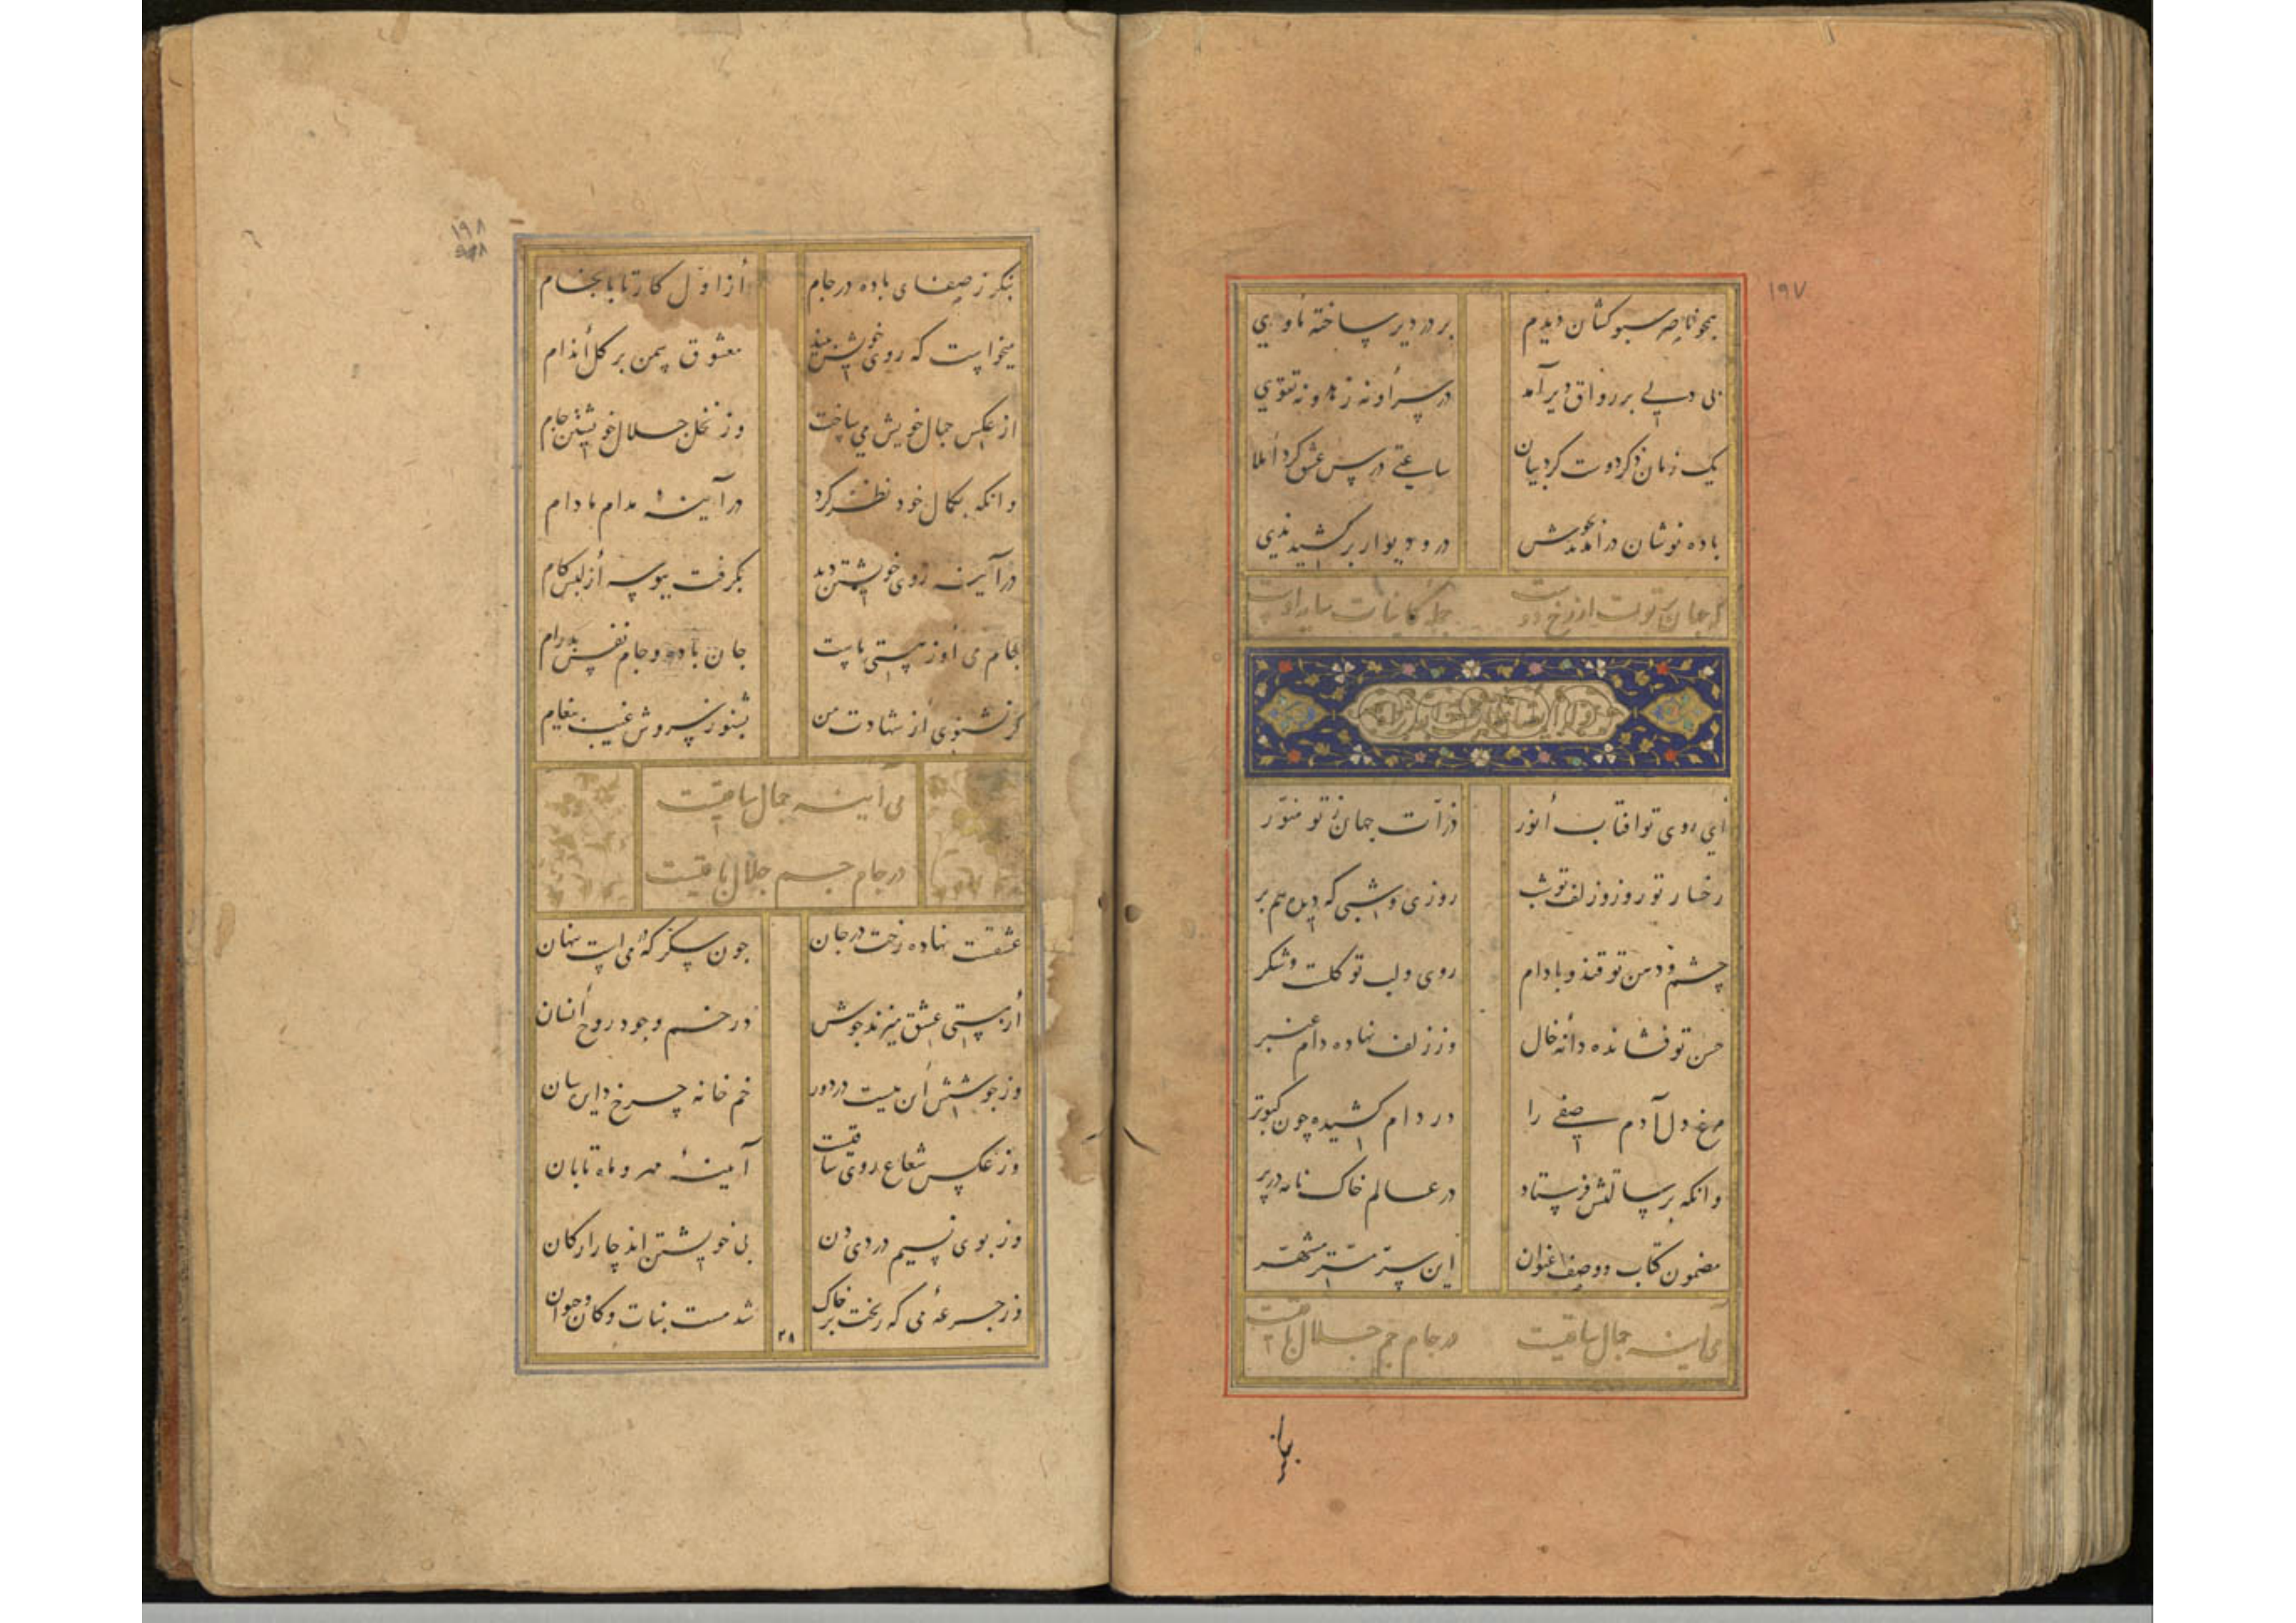 ۱۹۷
همچو ناصر سبوکشان دیدم بر در دیر ساخته ماوی
پی رواق دیر آمد در سر او نه زهد و نه تقوی
یک زمان ذکر دوست کرد بیان ساعتی درس عشق کرد املا
باده نوشان در آمدند بجوش در و دیوار بر کشید ندی
که جان پرتویست از رخ دوست جمله کاینات سایه اوست
ای روی تو افتاب انور ذرات جهان ز تو منور
رخسار تو روز و زلف تو شب روزی و شبی که دیده هم بر
چشم و دهن تو قند و بادام روی و لب تو کلست و شکر
حسن تو فشانده دانه خال وز زلف نهاده دام عنبر
مرغ دل آدم صفی را در دام کشیده چون کبوتر
وانکه برسالتش فرستاد در عالم خاک نامه در پر
مضمون کتاب دو وصف عنوان این ستر مستر مشتهر
می آینه جمال ساقیست در جام جم جلال باقیست
۱۹۸
بنکر ز صفای باده در جام از اول کار تا بانجام
میخواست که روی خویش بیند معشوق سمن بر کل اندام
از عکس جمال خویش می ساخت وز جلال خویشتن جام
وانکه بکمال خود نظر کرد در آینه مدام مادام
در آینه روی خویشتن دید بکرفت ببوسه از لبش کام
جام می او ز هستی ماست جان باده و جام نفس بدرام
کر نشنوی از شهادت من بشنو ز سروش غیب پیغام
می آینه جمال ساقیست
در جام جم جلال باقیست
عشقت نهاده رخت در جان چون سکر که در میست پنهان
از مستی عشق میزند جوش در خم وجود روح انسان
وز جوشش آن میست در دور خم خانه چرخ دایر سان
وز عکس شعاع روی ساقیست آینه مهر و ماه تابان
وز بوی نسیم دردی دن بی خویشتن اند چار ارکان
وز جرعه می که ریخت بر خاک شد مست نبات و کان و حیوان
۲۸